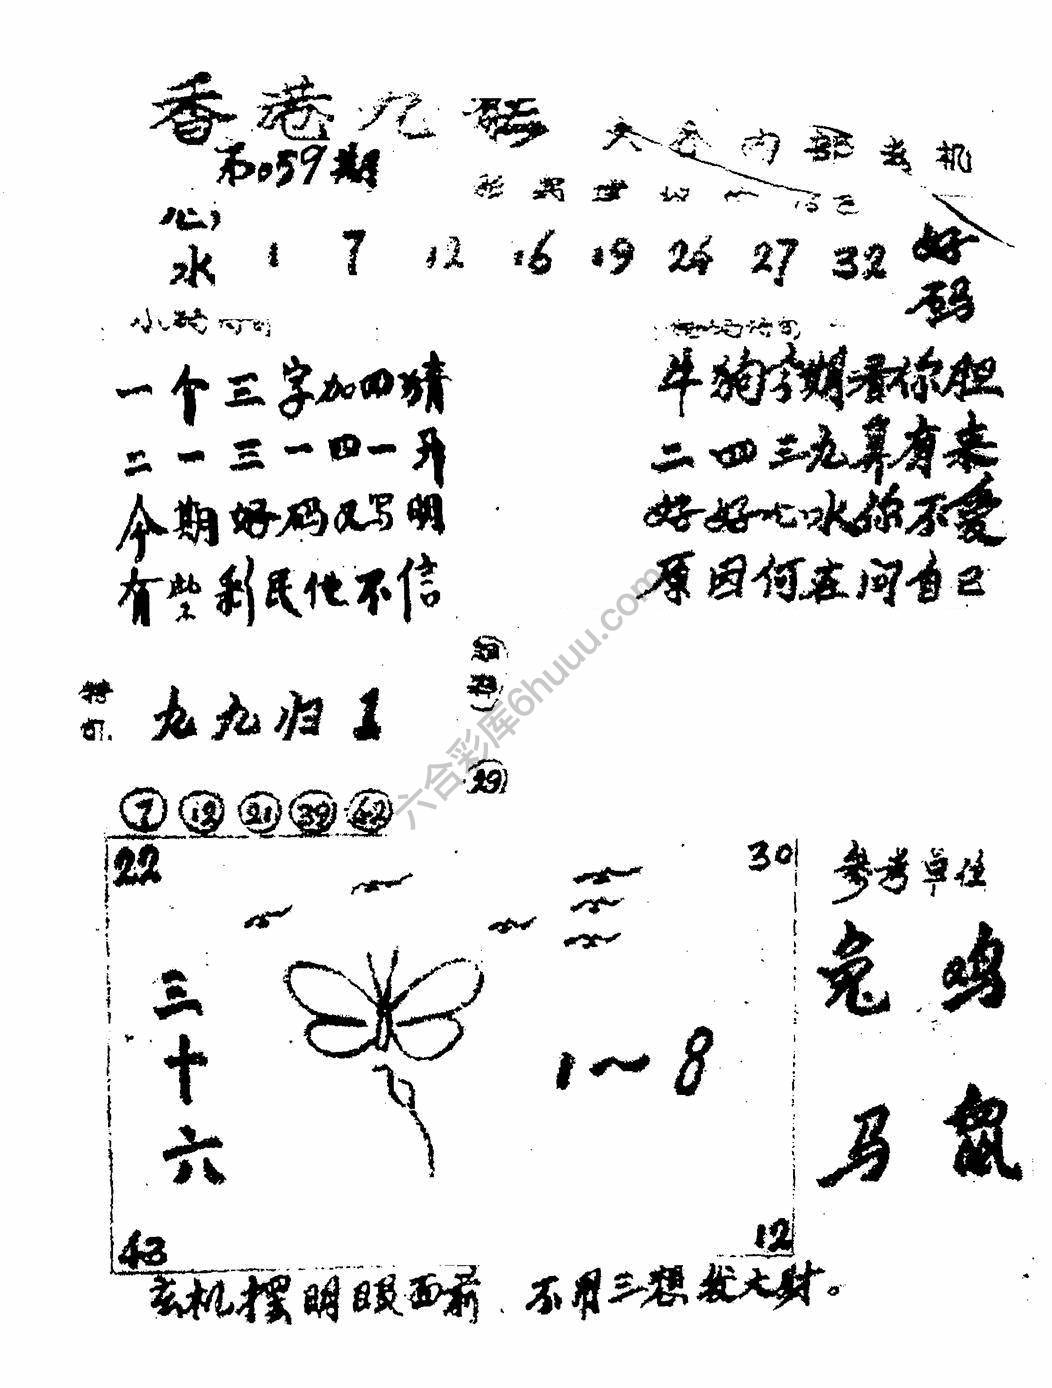 香港九
第059期
心水 1 7 12 16 19 26 27 32 好码
一个三字加四猜
二一三一四一开
今期好码又写明
有些彩民他不信
牛狗今期看你胆
二四三九算有来
好好心水你不爱
原因何在问自己
九九归1
29
7 12 21 39 42
22 30
参考单位
兔 鸡
马 鼠
三十六
1～8
43 12
玄机摆明眼面前 不用三想发大财。
六合彩库6huuu.com